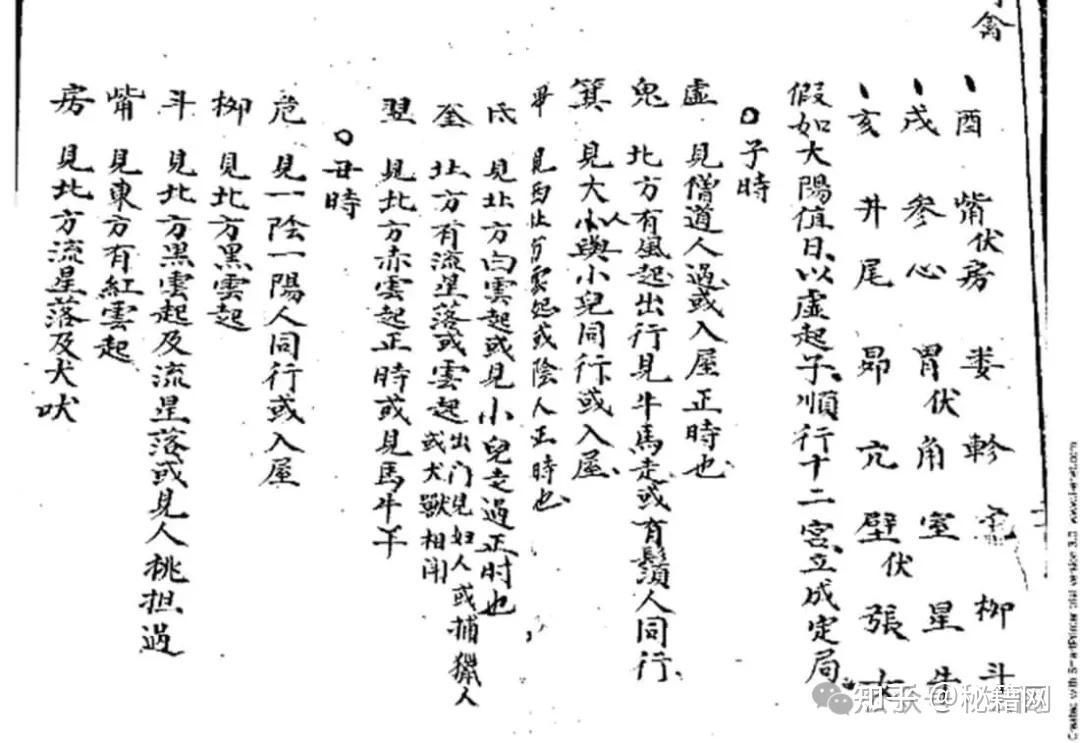 禽
酉 觜伏房 娄 軫 危 柳 斗
戌 參心 胃伏角 室 星 牛
亥 井尾 昴亢 壁伏張 女
假如大陽值日以虛起子順行十二宮立成定局
子時
虛 見僧道人過或入屋正時也
鬼 北方有風起出行見牛馬走或有鬚人同行
箕 見大小與以小兒同行或入屋
畢 見西北方雲起或陰人正時也
氐 見北方白雲起或見小兒走過正时也
奎 北方有流星落或雲起出门見妇人或捕獵人或犬獸相鬧
翌 見北方赤雲起正時或見馬牛羊
丑時
危 見一陰一陽人同行或入屋
柳 見北方黑雲起
斗 見北方黑雲起及流星落或見人桃担過
觜 見東方有紅雲起
房 見北方流星落及犬吠
知乎 @秘籍网